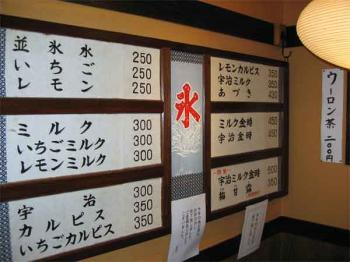 並氷水 250
いちご 250
レモン 250
ミルク 300
いちごミルク 300
レモンミルク 300
宇治 300
カルピス 350
いちごカルピス 350
氷
レモンカルピス 350
宇治ミルク 350
あづき 430
ミルク金時 450
宇治金時 450
宇治ミルク金時 500
梅甘露 350
ウーロン茶 二〇〇円